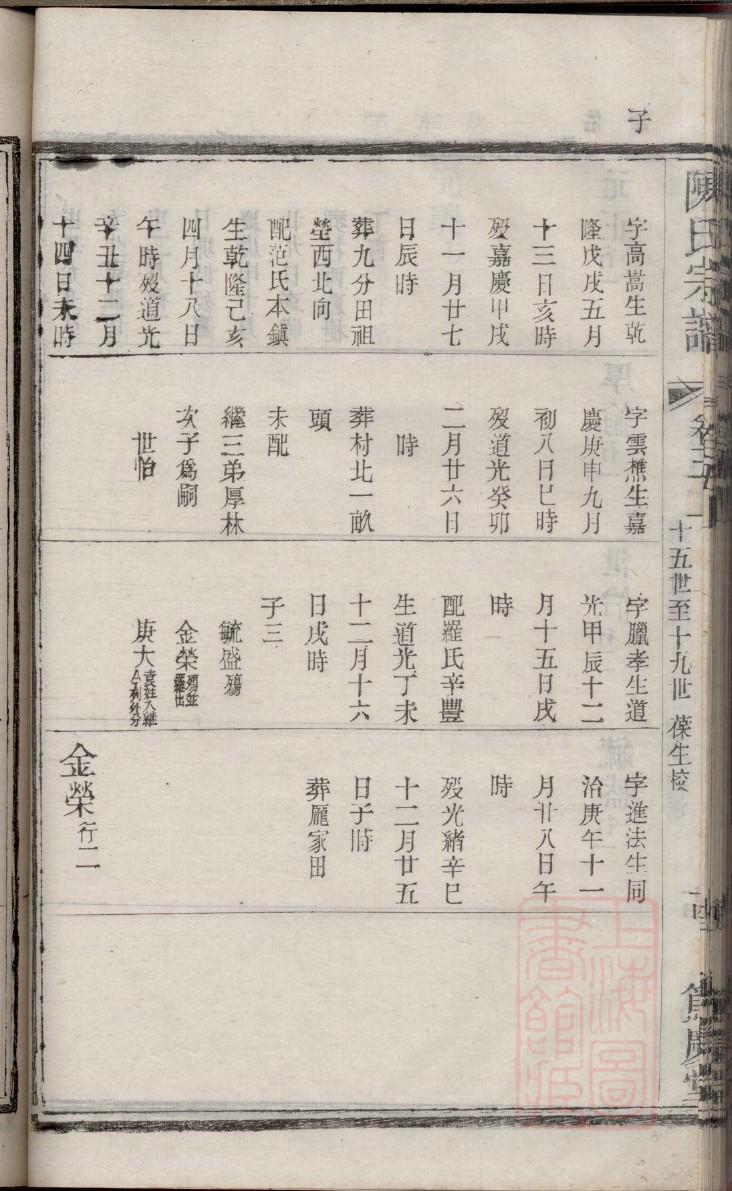 子
字高嵩生乾
隆戊戌五月
十三日亥時
歿嘉慶甲戌
十一月廿七
日辰時
葬九分田祖
塋西北向
配范氏本鎮
生乾隆己亥
四月十八日
午時歿道光
辛丑十二月
十四日未時
字雲樵生嘉
慶庚申九月
初八日巳時
歿道光癸卯
二月廿六日
時
葬村北一畝
頭
未配
繼三弟厚林
次子爲嗣
世怡
字臘孝生道
光甲辰十二
月十五日戌
時
配羅氏辛豐
生道光丁未
十二月十六
日戌時
子三
毓盛殤
金榮殤並羅出
庚大袁姓入繼
字進法生同
治庚午十一
月廿八日午
時
歿光緒辛巳
十二月廿五
日子時
葬龐家田
金榮行二
陳氏宗譜
卷五
十五世至十九世
葆生棱
篤慶堂
上海圖書館藏